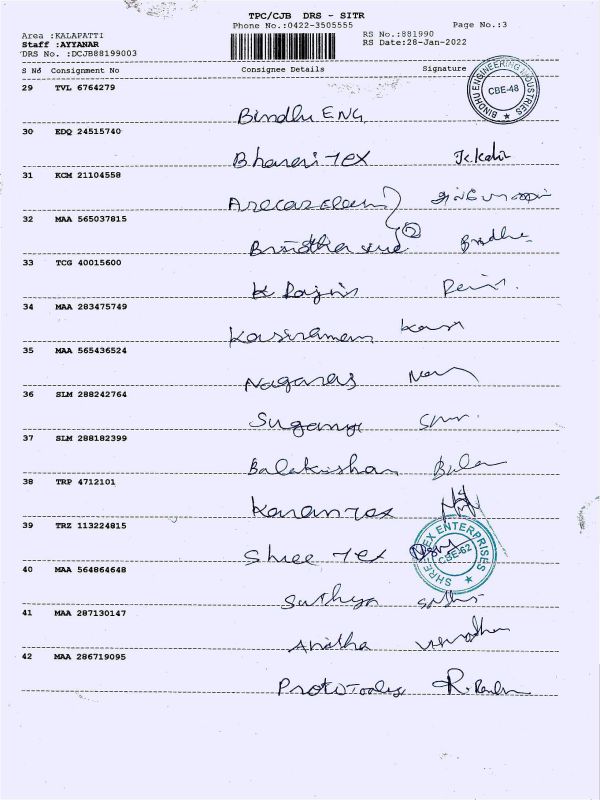 TPC/CJB DRS - SITR
Phone No.:0422-3505555 Page No.:3
Area :KALAPATTI RS No.:881990
Staff :AYYANAR RS Date:28-Jan-2022
DRS No. :DCJB88199003
S No Consignment No Consignee Details Signature
29 TVL 6764279
BINDHU ENGINEERING INDUSTRIES
CBE-48
Bindhu ENG
30 EDQ 24515740
Bharani Tex
31 KCM 21104558
32 MAA 565037815
2
33 TCG 40015600
K Rajini
34 MAA 283475749
Kasiraman
35 MAA 565436524
Nagaraj
36 SLM 288242764
Suganya
37 SLM 288182399
Balakrishan Bala
38 TRP 4712101
Karan Tex
39 TRZ 113224815
ENTERPRISES
CBE-62
Shree Tex
40 MAA 564864648
Sathya
41 MAA 287130147
Anitha
42 MAA 286719095
Proto Tooling